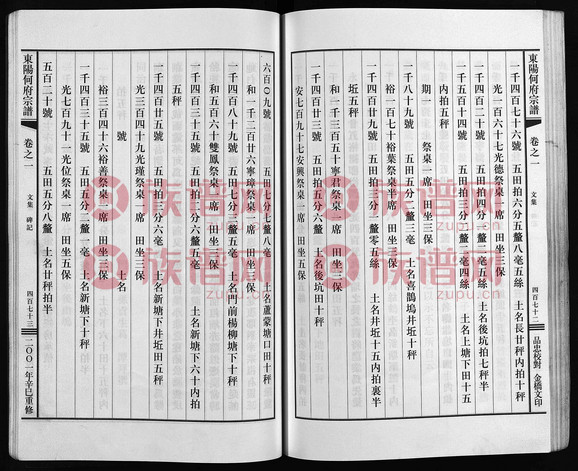 東陽何府宗譜
卷之一
文集
四百七十二
品忠校對 金橋文印
一千四百七十六號 五田拍六分五釐八毫五絲 土名長廿秤內拍十秤
光一百六十七光德祭桌一席 田坐三保
一千五百十四號 五田拍四分二釐五絲 土名後坑拍七秤半
一千四百五十一號 五田拍一分二毫四絲 土名上塘下田十五
內拍五秤
期一 祭桌一席 田坐三保
一千八十號 五田五分二釐三毫 土名喜鵲塢井坵十秤
裕一百七十裕葉祭桌半席 田坐三保
一千四百廿號 五田拍五分六毫 土名後坑田十秤
和一千三百五十寧君祭桌一席 田坐三保
一千四百廿九號 五田拍一分二釐零五絲 土名井坵十五內拍裏半
坵五秤
安七百九十七安興祭桌一席 田坐五保
六百〇九號 五田七分七釐八毫 土名蘆蒙塘口田十秤
和一千二百廿六寧璋祭桌一席 田坐二保
一千四百八十九號 五田七分三釐五毫 土名門前楊柳塘十秤
和五百六十雙鳳祭桌一席 田坐三保
一千四百三十五號 五田五分六釐五毫 土名新塘下六十內拍
五秤
光三百四十九光瑾祭桌一席 田坐三保
一千四百廿三號 五田三分六毫 土名新塘下井坵田五秤
號 土名
裕三百四十六裕善祭桌一席 田坐三保
一千四百三十五號 五田五分二釐一毫 土名新塘下十秤
光七百九十一光位祭桌一席 田坐五保
五百二十號 五田五分八釐 土名廿秤拍半
東陽何府宗譜
卷之一
文集 碑記
四百七十三
二〇〇一年辛巳重修
族谱网
zupu.cn